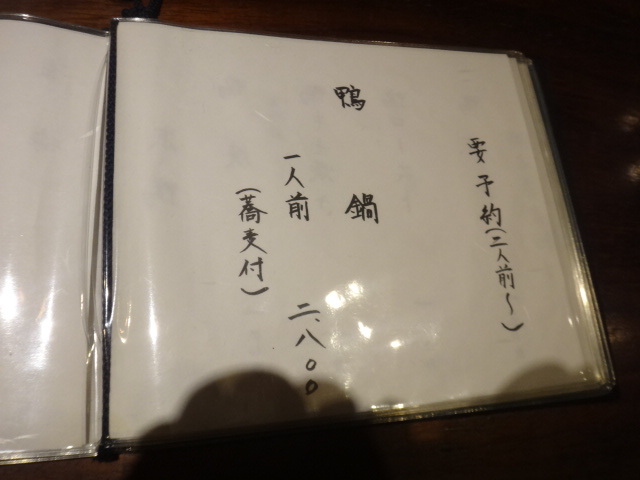 要予約(二人前〜)
鴨鍋
一人前 二、八〇〇
(蕎麦付)